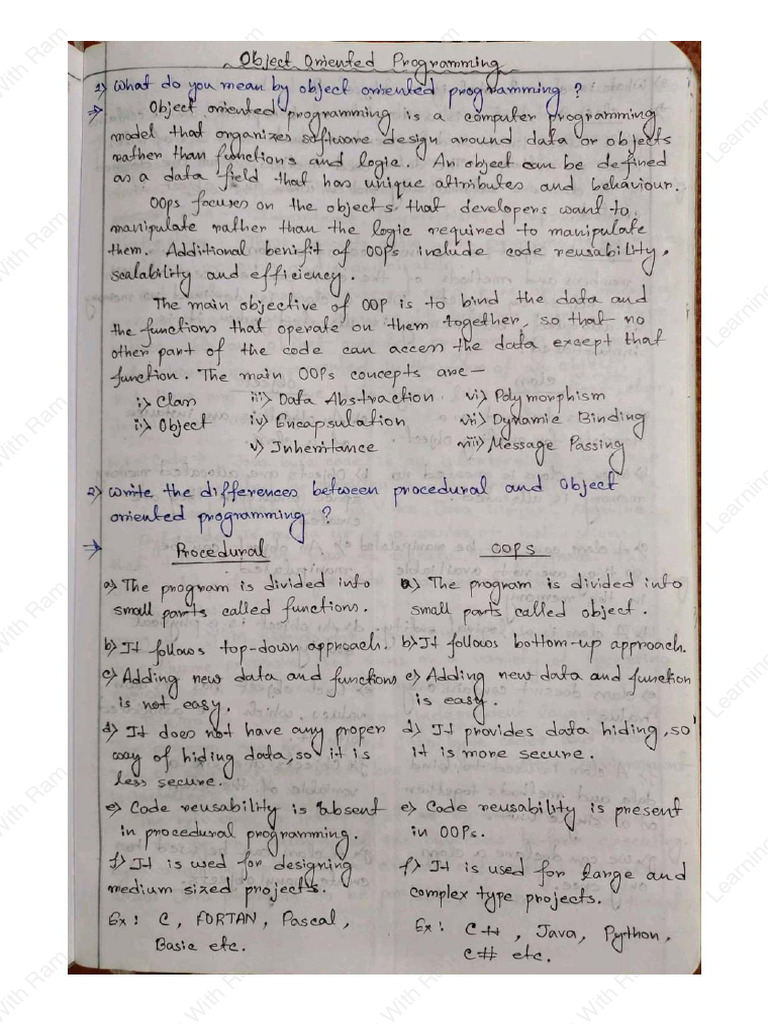 Object Oriented Programming
1) What do you mean by object oriented programming ?
⇒ Object oriented programming is a computer programming
model that organizes software design around data or objects
rather than functions and logic. An object can be defined
as a data field that has unique attributes and behaviour.
OOPs focuses on the objects that developers want to
manipulate rather than the logic required to manipulate
them. Additional benifit of OOPs include code reusability,
scalability and efficiency.
The main objective of OOP is to bind the data and
the functions that operate on them together, so that no
other part of the code can access the data except that
function. The main OOPs concepts are—
i) Class iii) Data Abstraction vi) Polymorphism
ii) Object iv) Encapsulation vii) Dynamic Binding
v) Inheritance viii) Message Passing
2) Write the differences between procedural and Object
oriented programming ?
⇒ Procedural
a) The program is divided into
small parts called functions.
b) It follows top-down approach.
c) Adding new data and functions
is not easy.
d) It does not have any proper
way of hiding data, so it is
less secure.
e) Code reusability is absent
in procedural programming.
f) It is used for designing
medium sized projects.
Ex: C, FORTAN, Pascal,
Basic etc.
OOPS
a) The program is divided into
small parts called object.
b) It follows bottom-up approach.
c) Adding new data and function
is easy.
d) It provides data hiding, so
it is more secure.
e) Code reusability is present
in OOPs.
f) It is used for large and
complex type projects.
Ex: C++, Java, Python,
C# etc.
Learning
With Ram